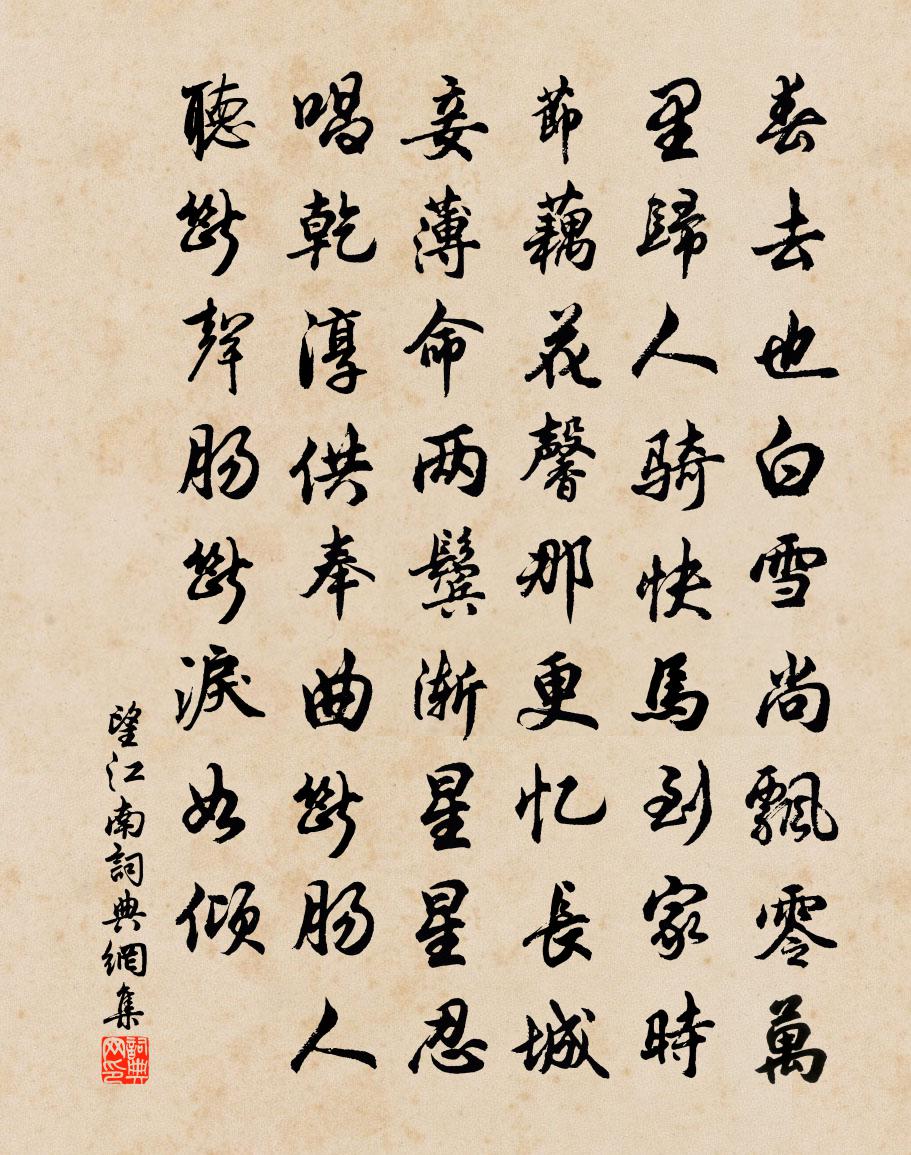 春去也白雪尚飄零萬
里歸人騎快馬到家時
節藕花馨那更忆長城
妾薄命两鬢漸星星忍
唱乾淳供奉曲斷肠人
聽斷聲肠斷淚如傾
望江南詞典網集
詞典网印